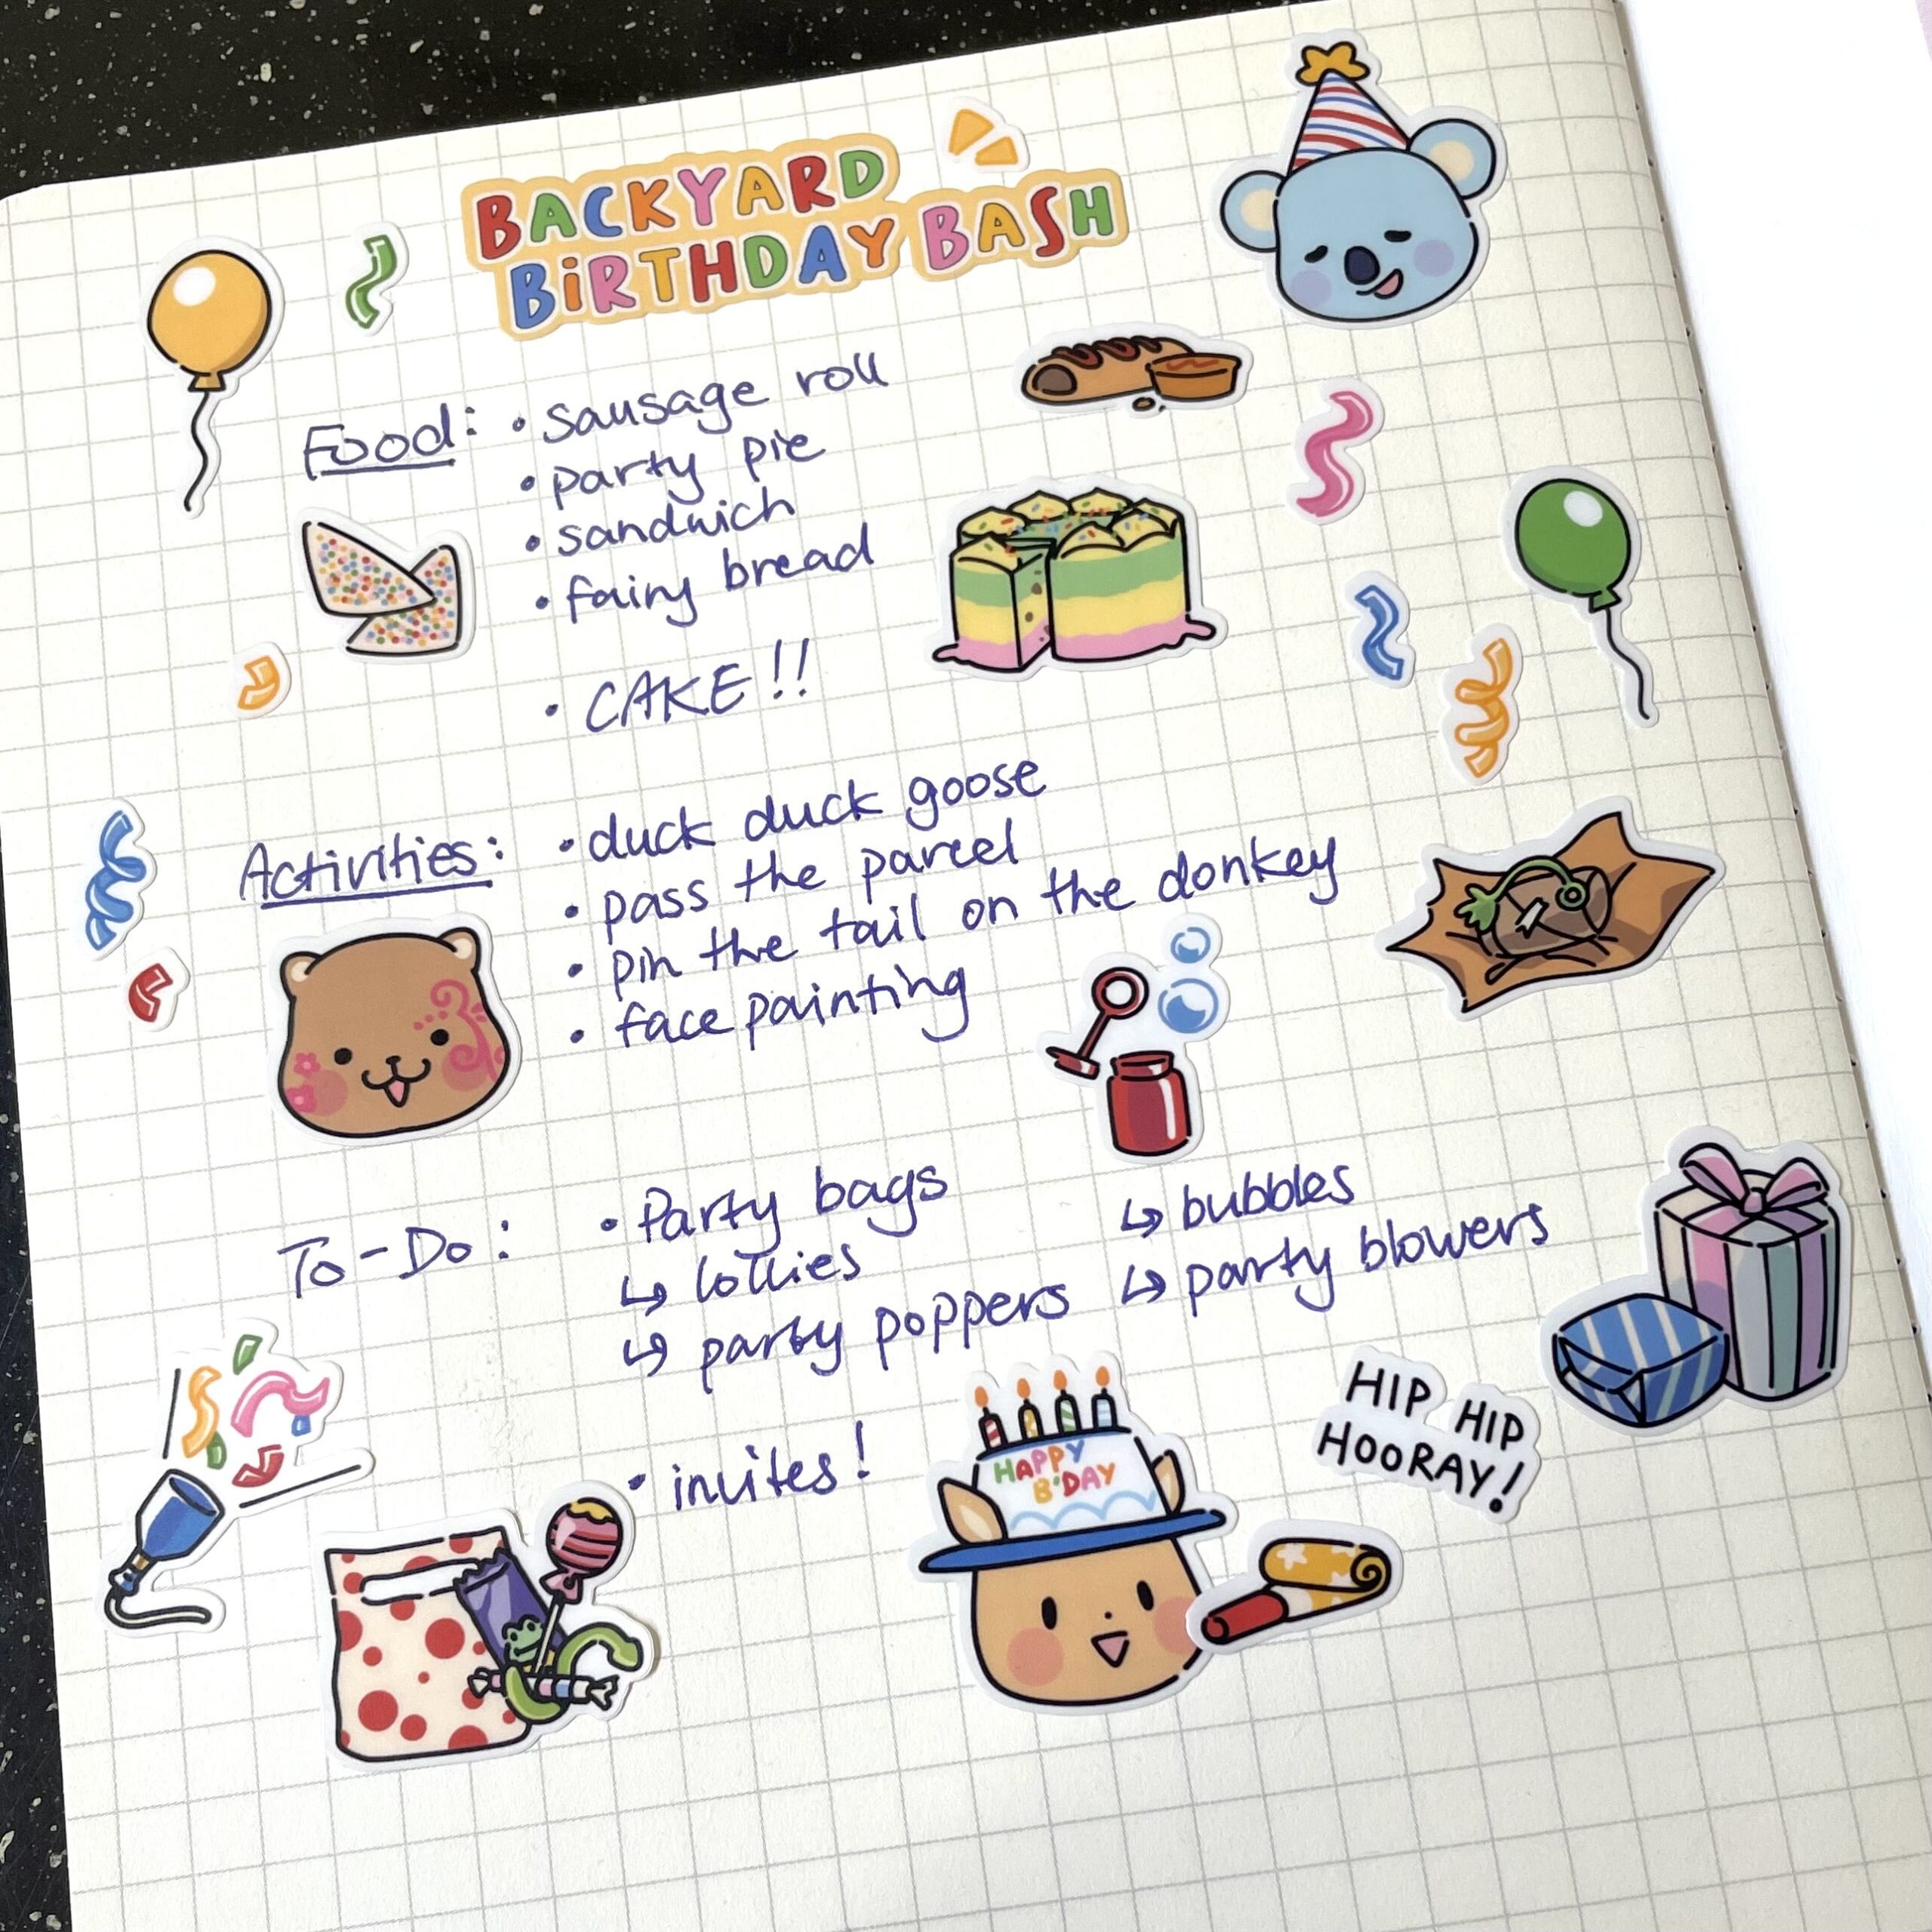 BACKYARD
BiRTHDAY BASH
Food: • sausage roll
• party pie
• sandwich
• fairy bread
• CAKE!!
Activities: • duck duck goose
• pass the parcel
• pin the tail on the donkey
• face painting
To-Do: • Party bags
↳ lollies
↳ party poppers
↳ bubbles
↳ party blowers
• invites!
HAPPY
B'DAY
HIP HIP
HOORAY!